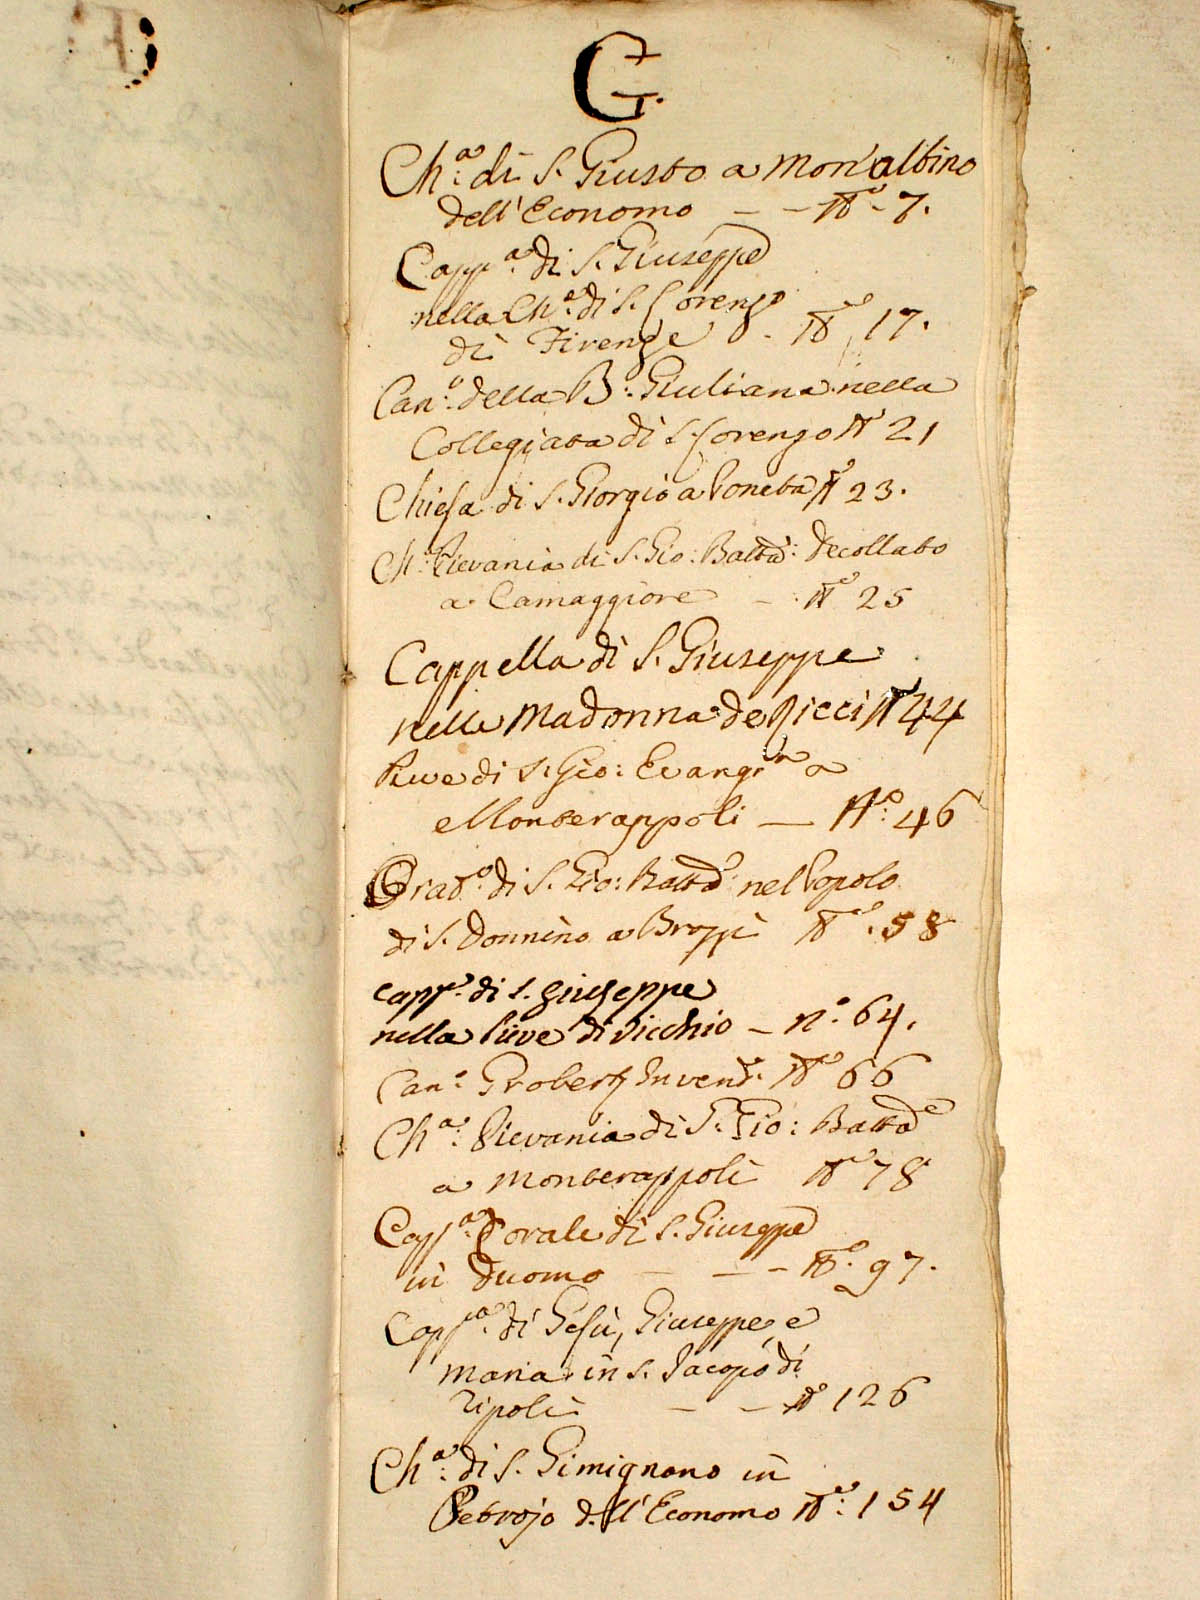 G.
Ch.ª di S. Giusto a Mon'albino
dell'Economo - - N.º 7.
Capp.ª di S. Giuseppe
nella Ch.ª di S. Lorenzo
di Firenze - N.º 17.
Can.º della B: Giuliana nella
Collegiata di S. Lorenzo N.º 21
Chiesa di S. Giorgio a N.º 23.
Ch.ª Pievania di S. Gio: Batta: Decollato
a Camaggiore - N.º 25
Cappella di S. Giuseppe
nella Madonna de Ricci N.º 44
Pieve di S. Gio: Evang.ta a
Monterappoli — N.º 46
di S. Gio: Batta nel Popolo
di S. Donnino a Brozzi N.º 58
Capp.ª di S. Giuseppe
nella Pieve di Vicchio - n.º 64.
Can.º N.º 66
Ch.ª: Pievania di S. Gio: Batta
a Monterappoli N.º 78
Capp.ª Corale di S. Giuseppe
in Duomo - - - N.º 97.
Capp.ª di Gesù, Giuseppe, e
Maria in S. Jacopo di
Ripoli - - N.º 126
Ch.ª di S. Gimignano in
Petrojo dell'Economo N.º: 154